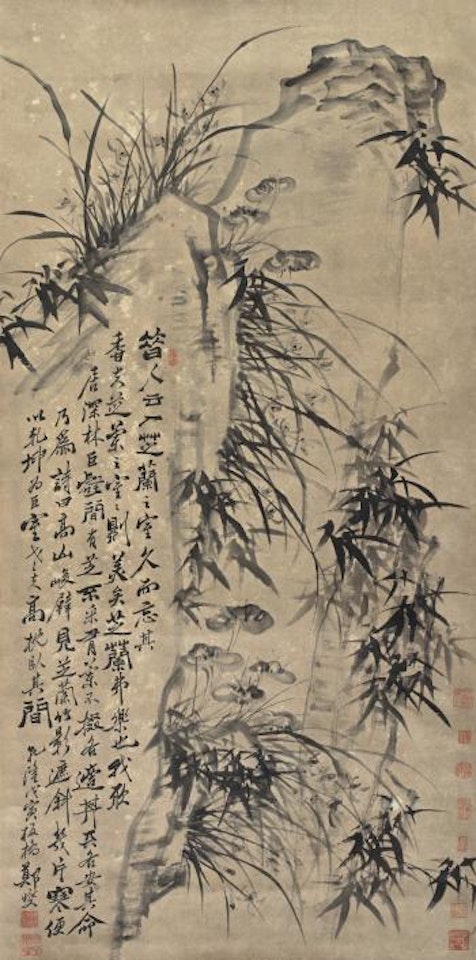 昔人云入芝蘭之室久而忘其
香夫芝蘭之室室則美矣芝蘭弗樂也我欲
居深林巨壑間有芝不采有蘭不掇各安其命
乃為詩曰高山峻壁見芝蘭竹影遮斜幾片寒便
以乾坤為巨室老夫高枕臥其間
乾隆戊寅板橋鄭燮